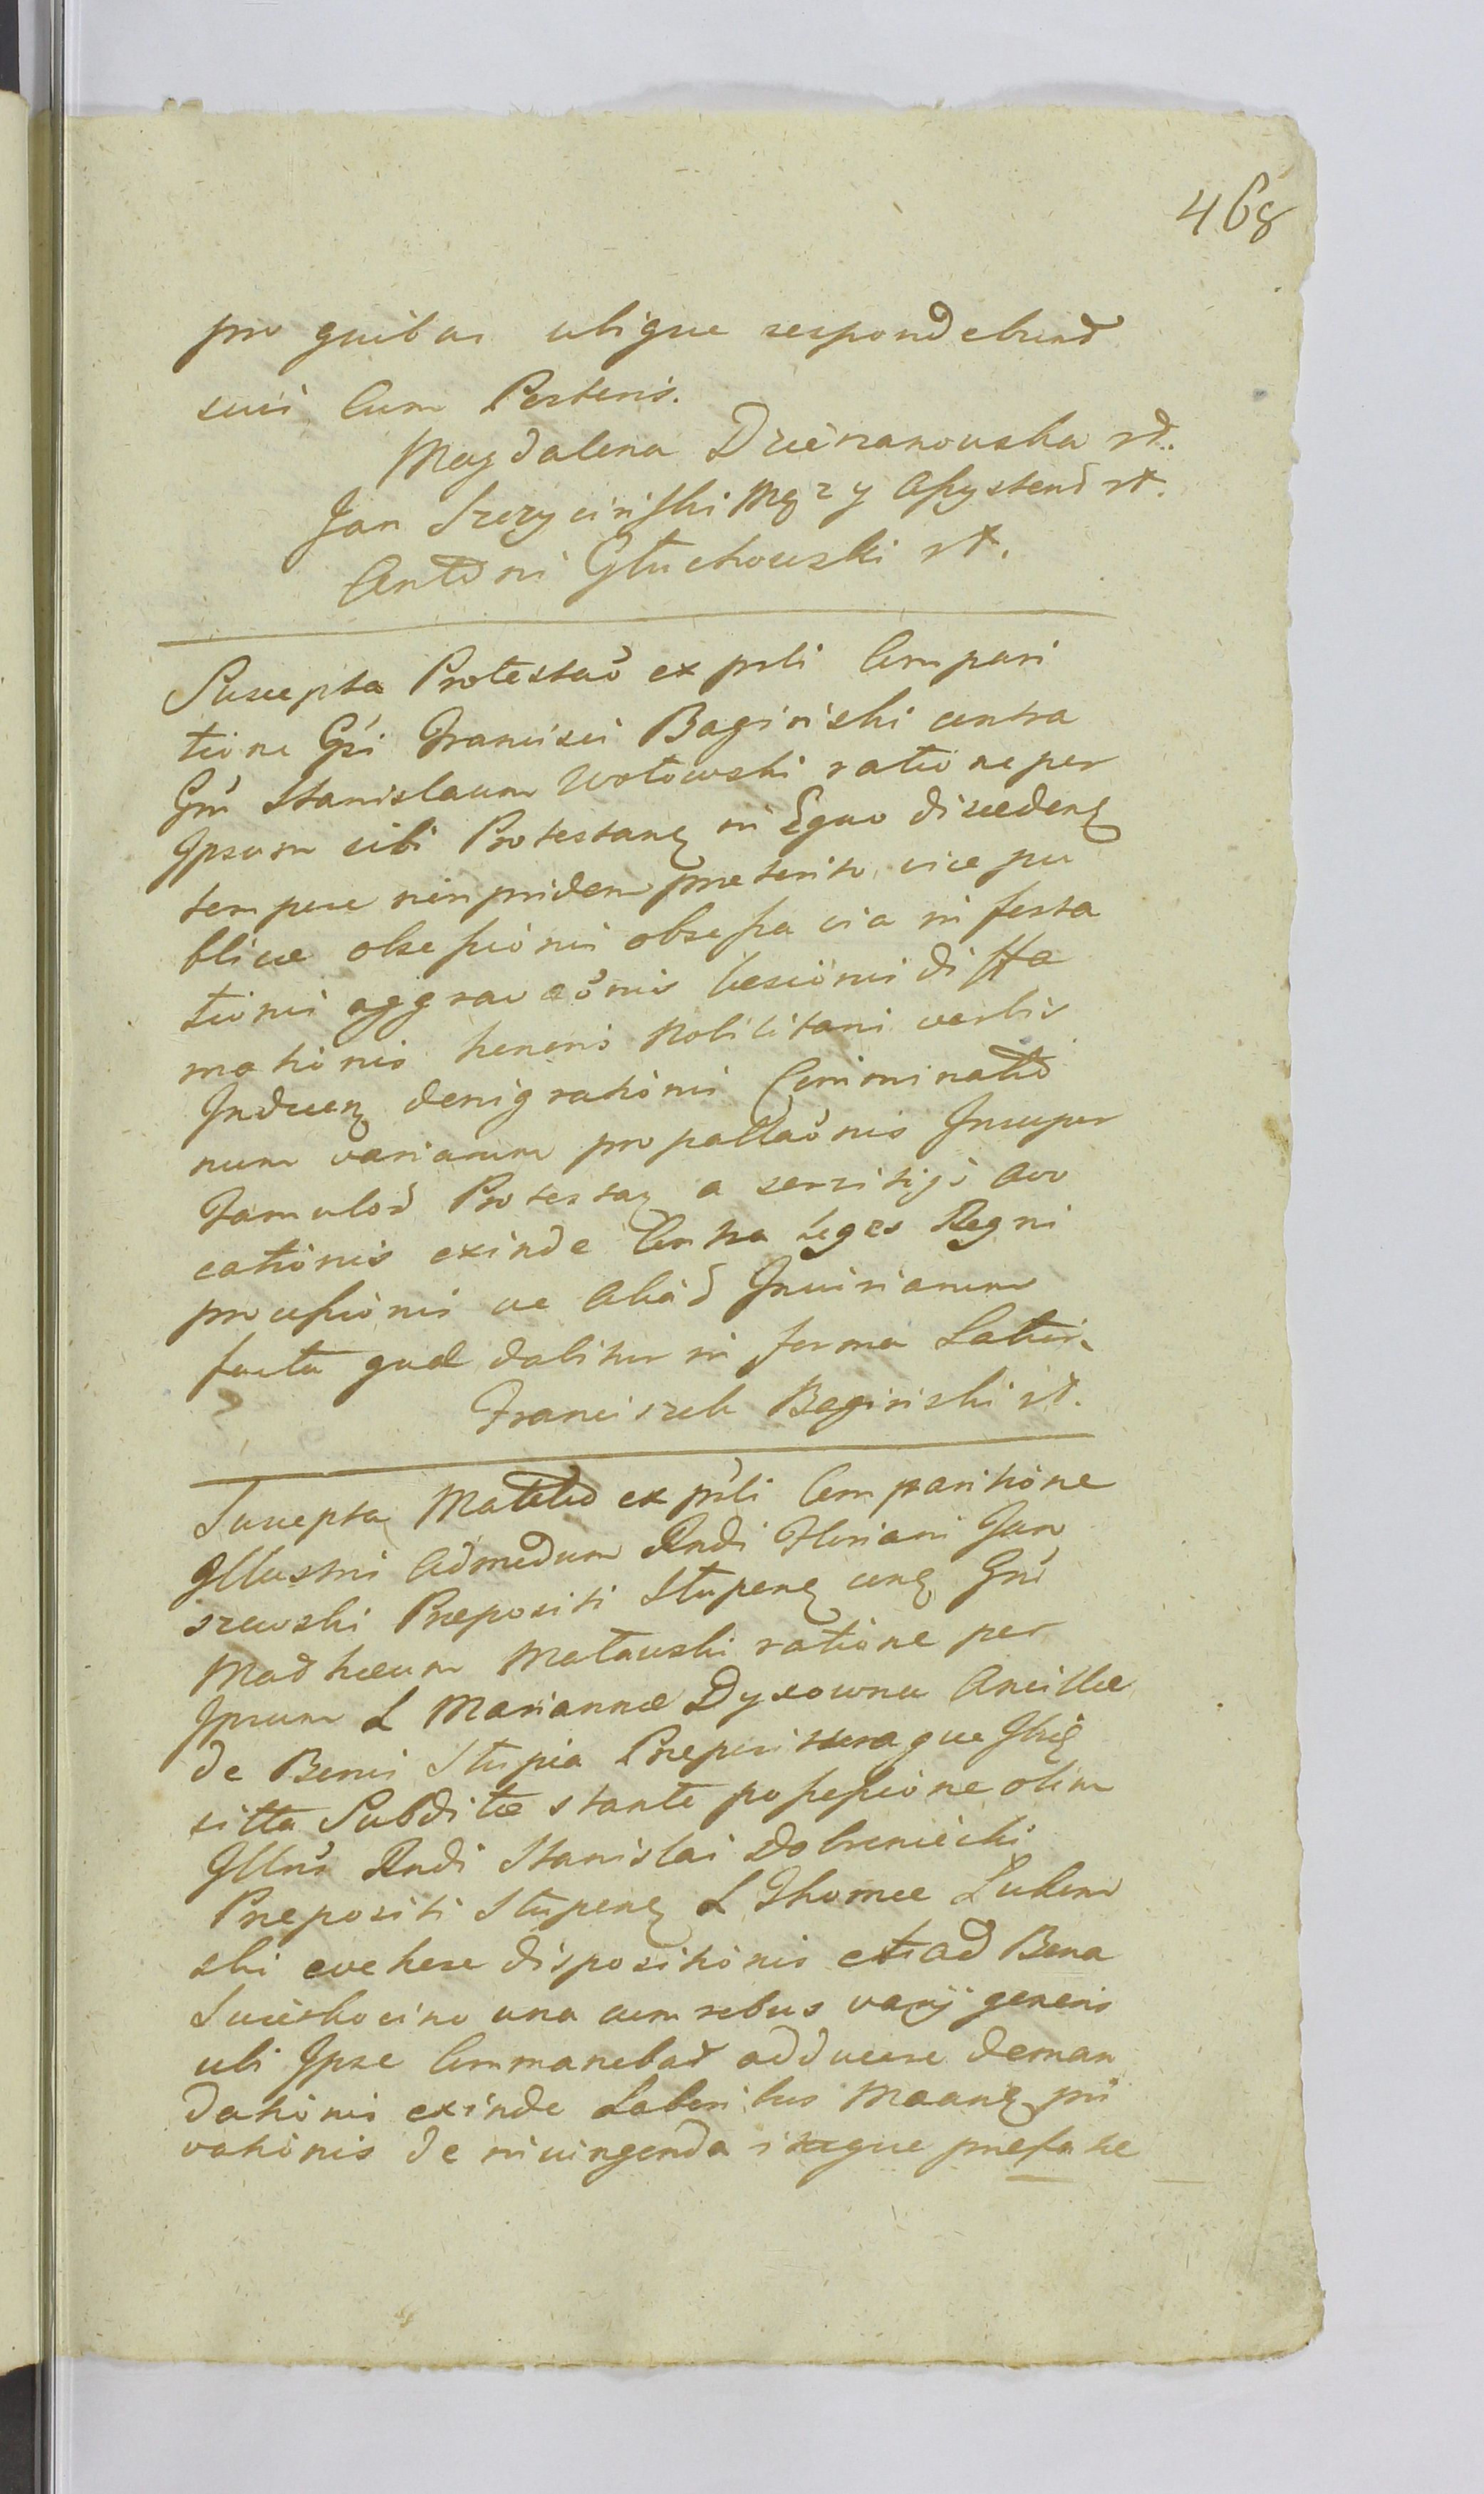 468
pro quibus ubique respondebund
suis Cum Posteris.
Magdalena Dzierzanowska st.
Jan Szczycinski Mąz y Assystend st.
Antoni Głuchowski st.
Suscepta Protestaõ ex prli Compari
tione Gsi Francisci Baginski contra
Grũ Stanislaum Wołowski ratione per
Ipsum sibi Protestanŧ in Equo discedenŧ
tempore non pridem præterito vice pu
blicæ obsessionis obsessa via infesta
tionis aggravaõnis læsionis diffa
mationis honoris Nobilitari verbis
Inducen denigrationis Criminatio
num variarum propallaõnis Insuper
Famulor Protestan a servitijs avo
cationis exinde Contra Leges Regni
processionis ac aliad Iniuriarum
facta quæ dabitur in forma Latiori
Franciszek Baginski st.
Suscepta Mattio ex prli Comparitione
Illustris Admodum Rndi Floriani Jan
szewski Præpositi Stupenŧ conŧ Grũ
Mathæum Matawski ratione per
Ipsum L Mariannæ Dyxowna Ancillæ
de Bonis Stupia Præpositura que Ibiđ
sitta Subditæ stante possessione olim
Illris Rndi Stanislai Dobreniecki
Præpositi Stupenŧ L Thomæ Lubom
ski evehere dispositionis et ad Bona
Swieskocino una cum rebus varij generis
ubi Ipse Commanebat adducere deman
dationis exinde Laboribus Maanŧ pri
vationis de iniungenda itaque præfatæ